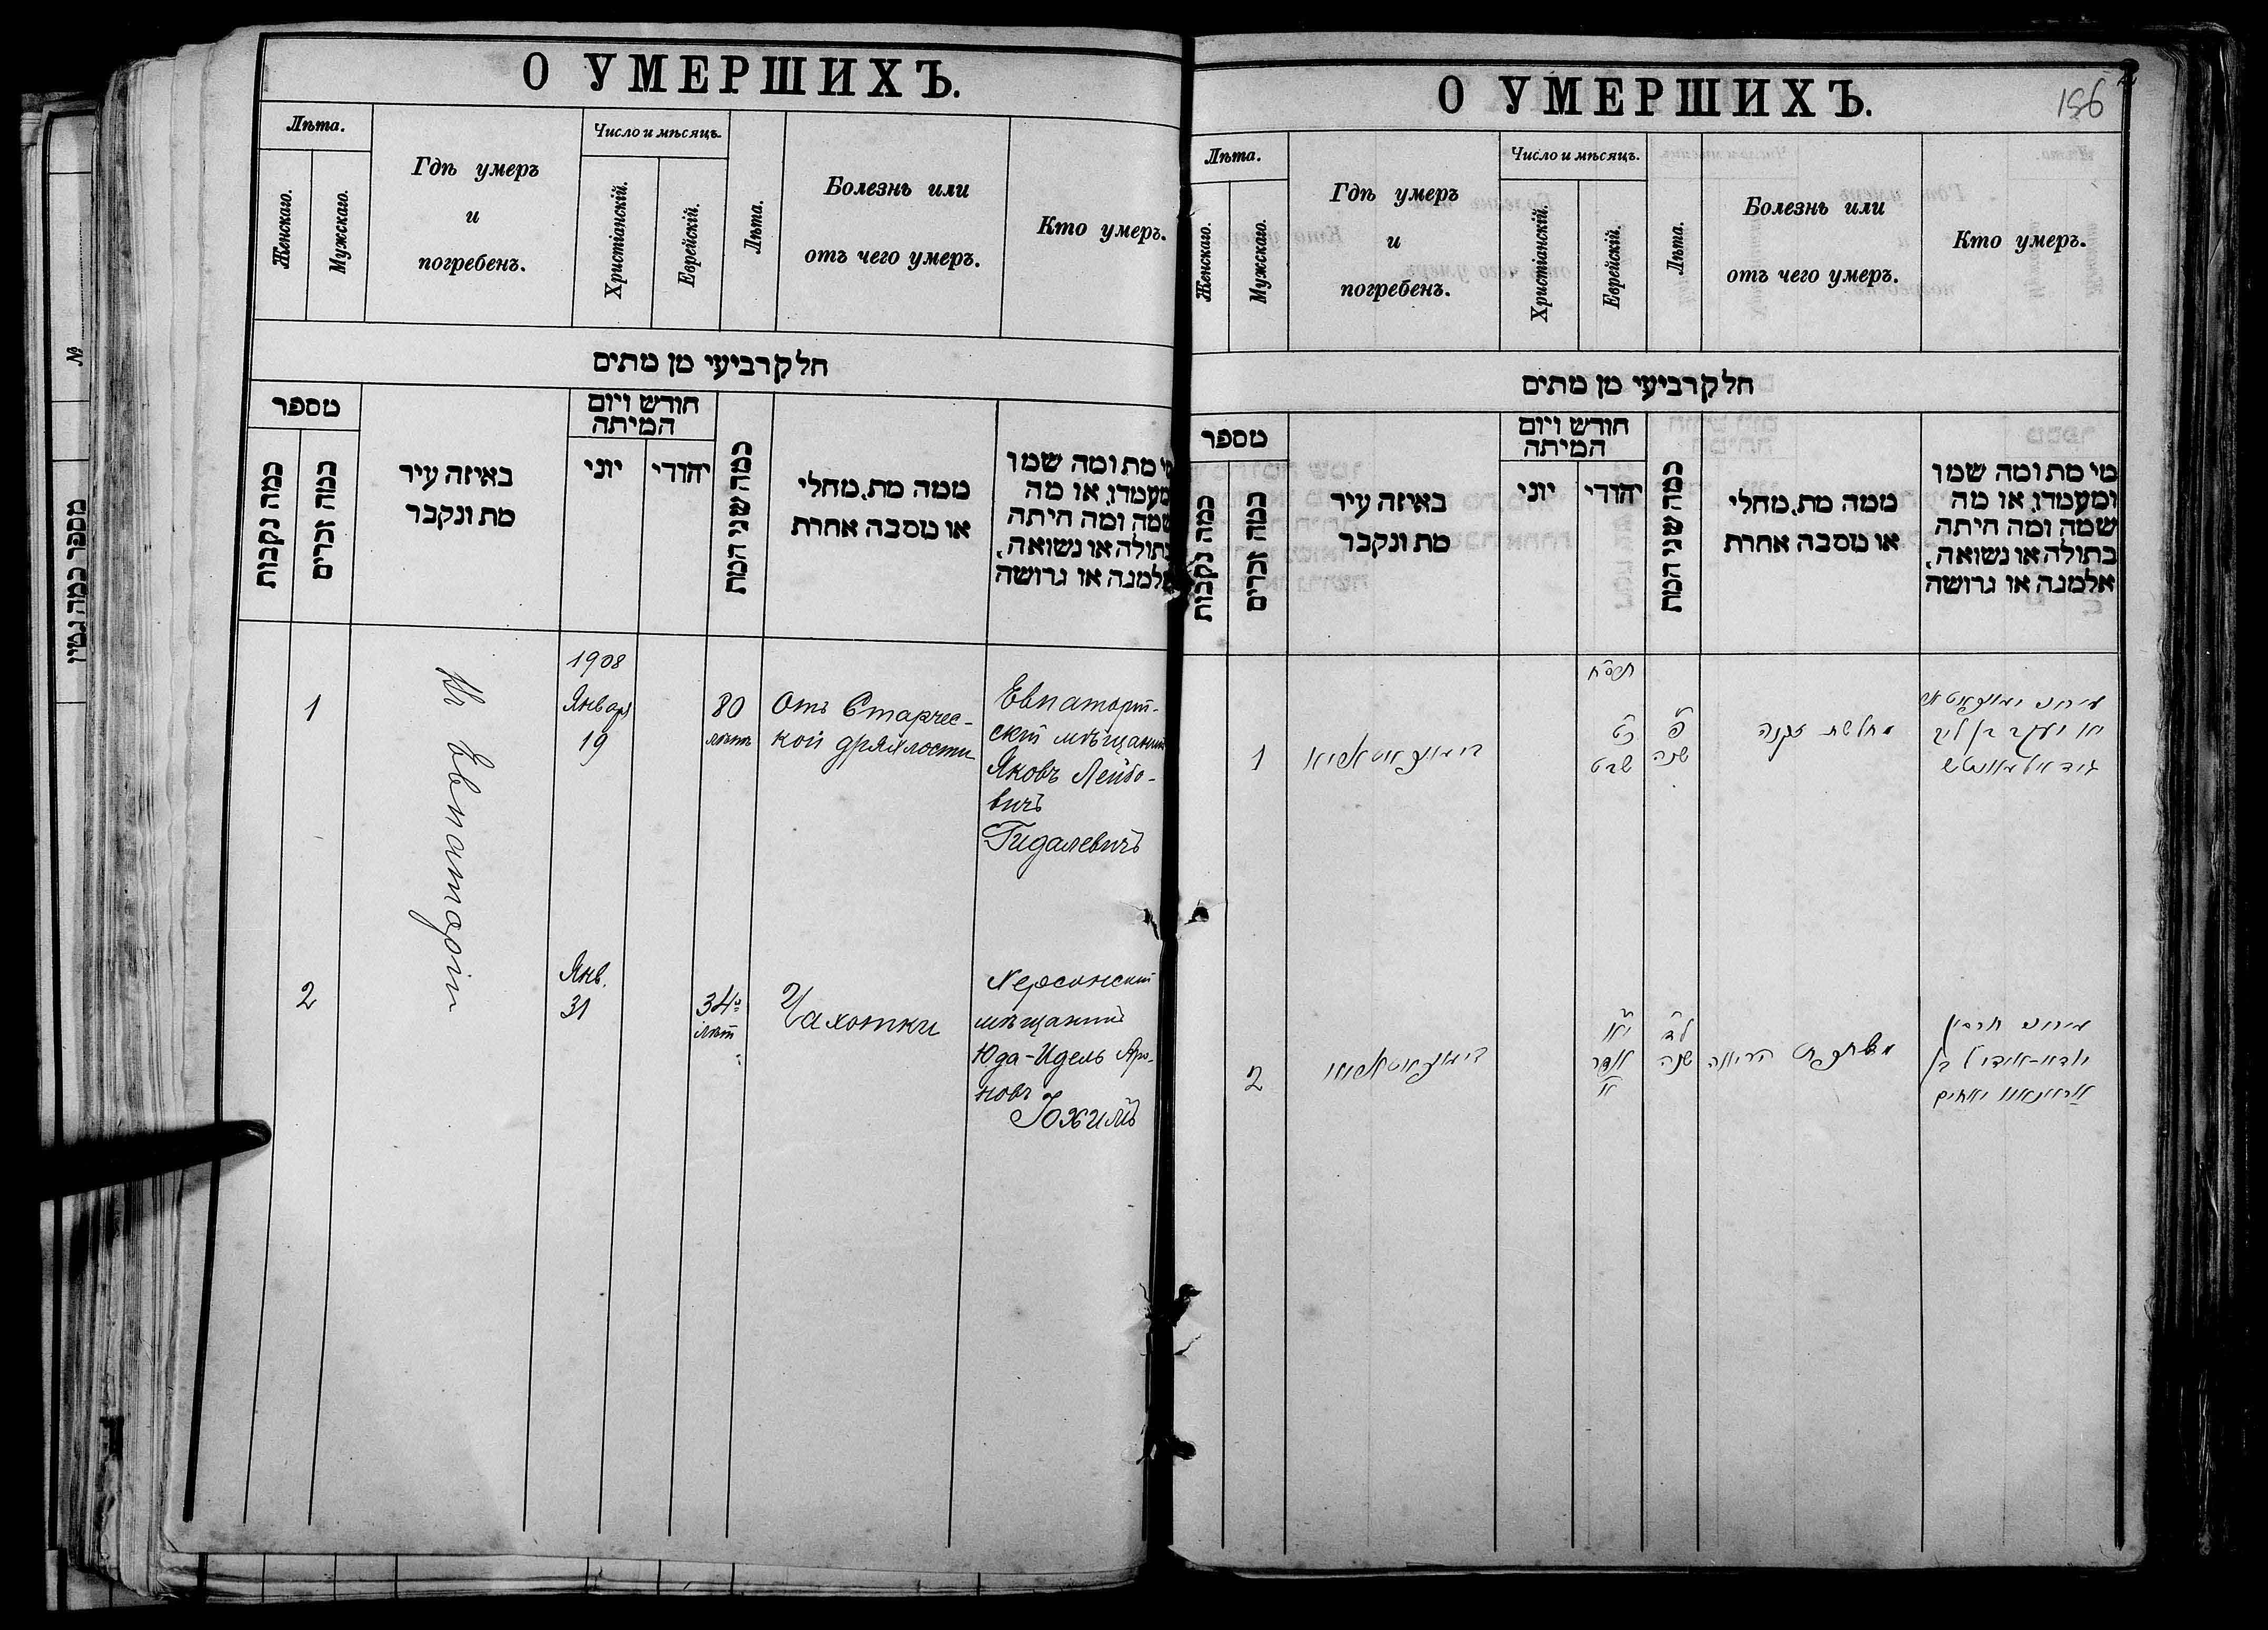 О УМЕРШИХЪ.
Лѣта.
Женскаго.
Мужскаго.
Гдѣ умеръ
и
погребенъ.
Число и мѣсяцъ.
Христіанскій.
Еврейскій.
Лѣта.
Болезнь или
отъ чего умеръ.
Кто умеръ.
חלק רביעי מן מתים
מספר
כמה נקבות
כמה זכרים
באיזה עיר
מת ונקבר
חודש ויום
המיתה
יוני
יהודי
כמה שני המת
ממה מת, מחלי
או מסבה אחרת
מי מת ומה שמו
ומעמדו, או מה
שמה ומה היתה
בתולה או נשואה,
אלמנה או גרושה
1
Евпаторіи
1908
Января
19
80
лѣтъ
Отъ Старчес-
кой дряхлости
Евпаторій-
скій мѣщанинъ
Яковъ Лейбо-
вичъ
Гидалевичъ
2
Янв.
31
34
лѣт
Чахотки
Херсонскій
мѣщанинъ
Юда-Идель Аро-
новъ
Іохимъ
О УМЕРШИХЪ.
196
Лѣта.
Женскаго.
Мужскаго.
Гдѣ умеръ
и
погребенъ.
Число и мѣсяцъ.
Христіанскій.
Еврейскій.
Лѣта.
Болезнь или
отъ чего умеръ.
Кто умеръ.
חלק רביעי מן מתים
מספר
כמה נקבות
כמה זכרים
באיזה עיר
מת ונקבר
חודש ויום
המיתה
יוני
יהודי
כמה שני המת
ממה מת, מחלי
או מסבה אחרת
מי מת ומה שמו
ומעמדו, או מה
שמה ומה היתה
בתולה או נשואה,
אלמנה או גרושה
1
תרס״ח
שבט
פ׳
שנה
מחלשת זקנה
יעקב בן ליב
2
י״א
אדר
א׳
ל״ד
שנה
הריאה
יודא-אידיל בן